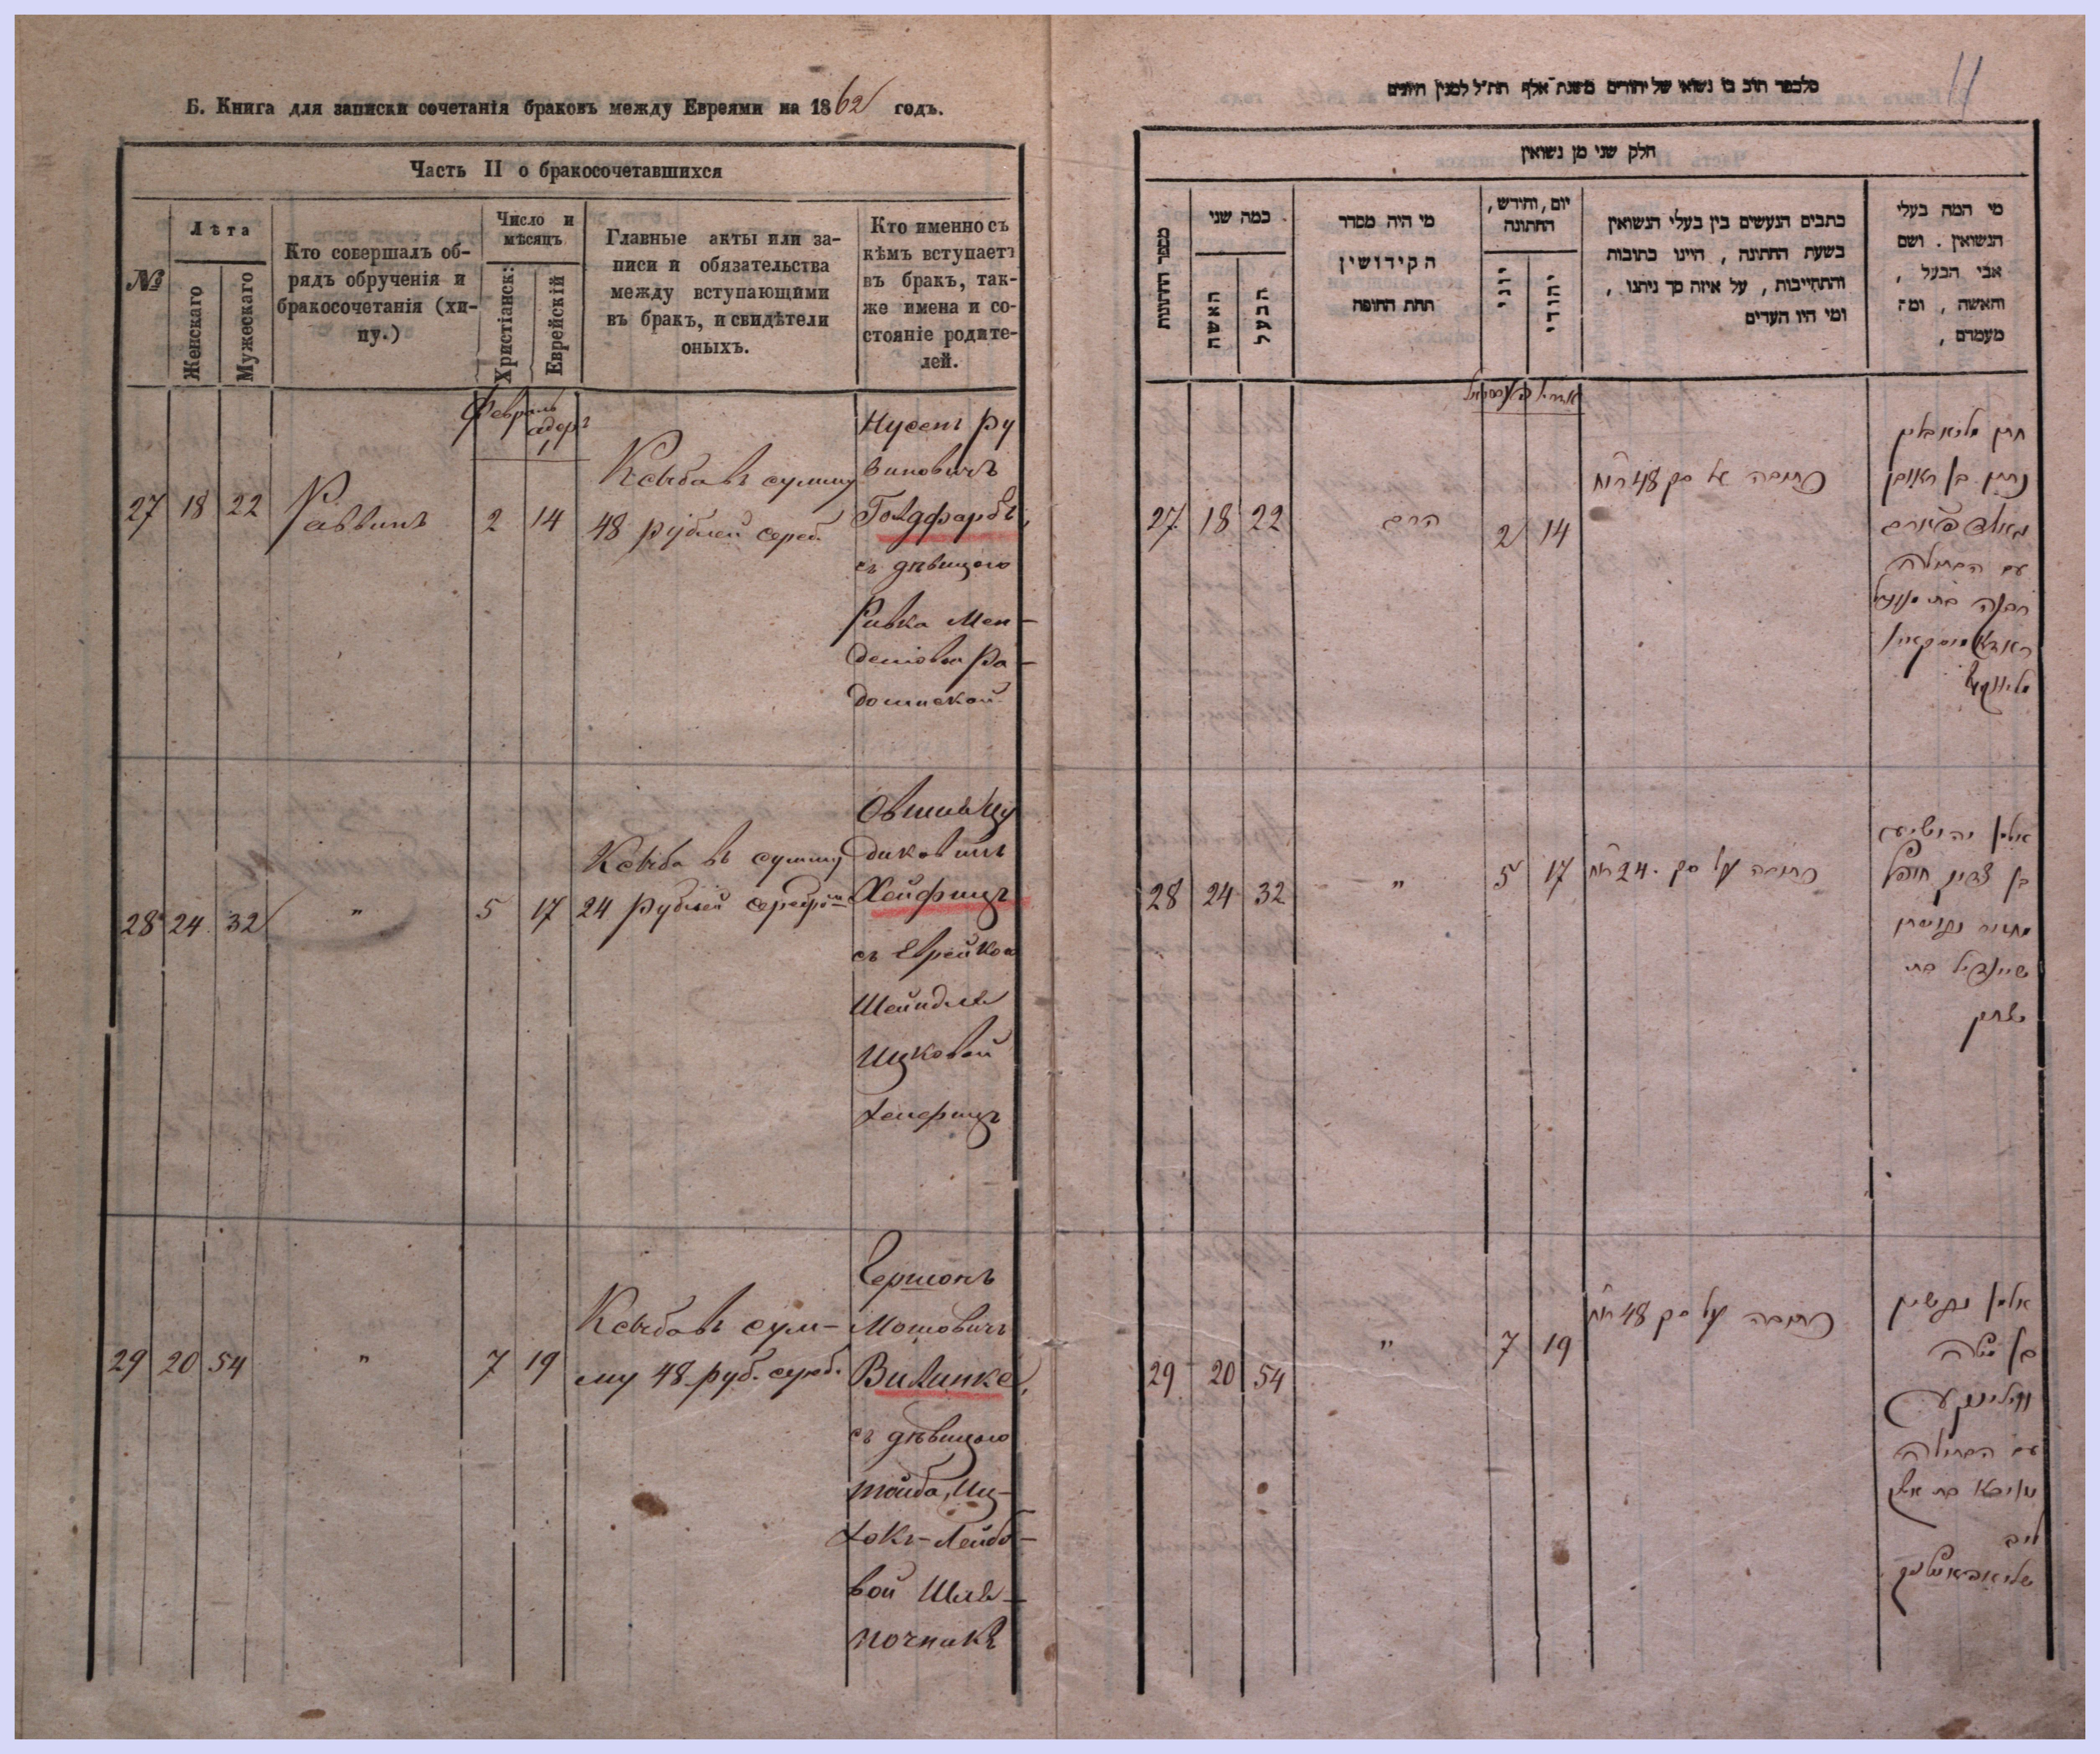 Б. Книга для записки сочетанія браковъ между Евреями на 1862 годъ.
Часть II о бракосочетавшихся
№
Лѣта
Женскаго
Мужескаго
Кто совершалъ об-
рядъ обрученія и
бракосочетанія (хи-
пу.)
Число и
мѣсяцъ
Христіанск:
Еврейскій
Главные акты или за-
писи и обязательства
между вступающими
въ бракъ, и свидѣтели
оныхъ.
Кто именно съ
кѣмъ вступаетъ
въ бракъ, так-
же имена и со-
стояніе родите-
лей.
Февраль
адеръ
27 18 22 Раввинъ 2 14
Ксыба въ сумму
48 рублей сереб.
Нусенъ Ру
виновичъ
Голдфарбъ,
съ дѣвицою
Ривка Мен-
делiовна Ра-
домискай
28 24 32 " 5 17
Ксыба въ сумму
24 рублей серебром
Овшия Цу
диковичъ
Хейфицъ
съ Еврейкою
Шейндля
Ицковой
Хейфицъ
29 20 54 " 7 19
Ксыба въ сум-
му 48 руб. сереб.
Гершонъ
Мошовичъ
Вилинке,
съ дѣвицою
тойба, Иц-
хокъ-Лейбо-
вой Шля-
почникъ
11
חלק שני מן נשואין
מספר החתונות
כמה שני
האשה
הבעל
מי היה מסדר
הקידושין
תחת החופה
יום, וחודש,
החתונה
יוני
יהודי
כתבים הנעשים בין בעלי הנשואין
בשעת החתונה, היינו כתובות
והתחייבות, על איזה סך ניתנו,
ומי היו העדים
מי המה בעלי
הנשואין. ושם
אבי הבעל,
והאשה, ומה
מעמדם,
27 18 22 הרב 2 14
כתובה על סך 48 רו״כ
נתן בן ראובן
עם הבתולה
28 24 32 " 5 17
כתובה על סך 24 רו״כ
שיינדיל בת
יצחק
29 20 54 " 7 19
כתובה על סך 48 רו״כ
בן משה
ווילינקע
עם הבתולה
לייב